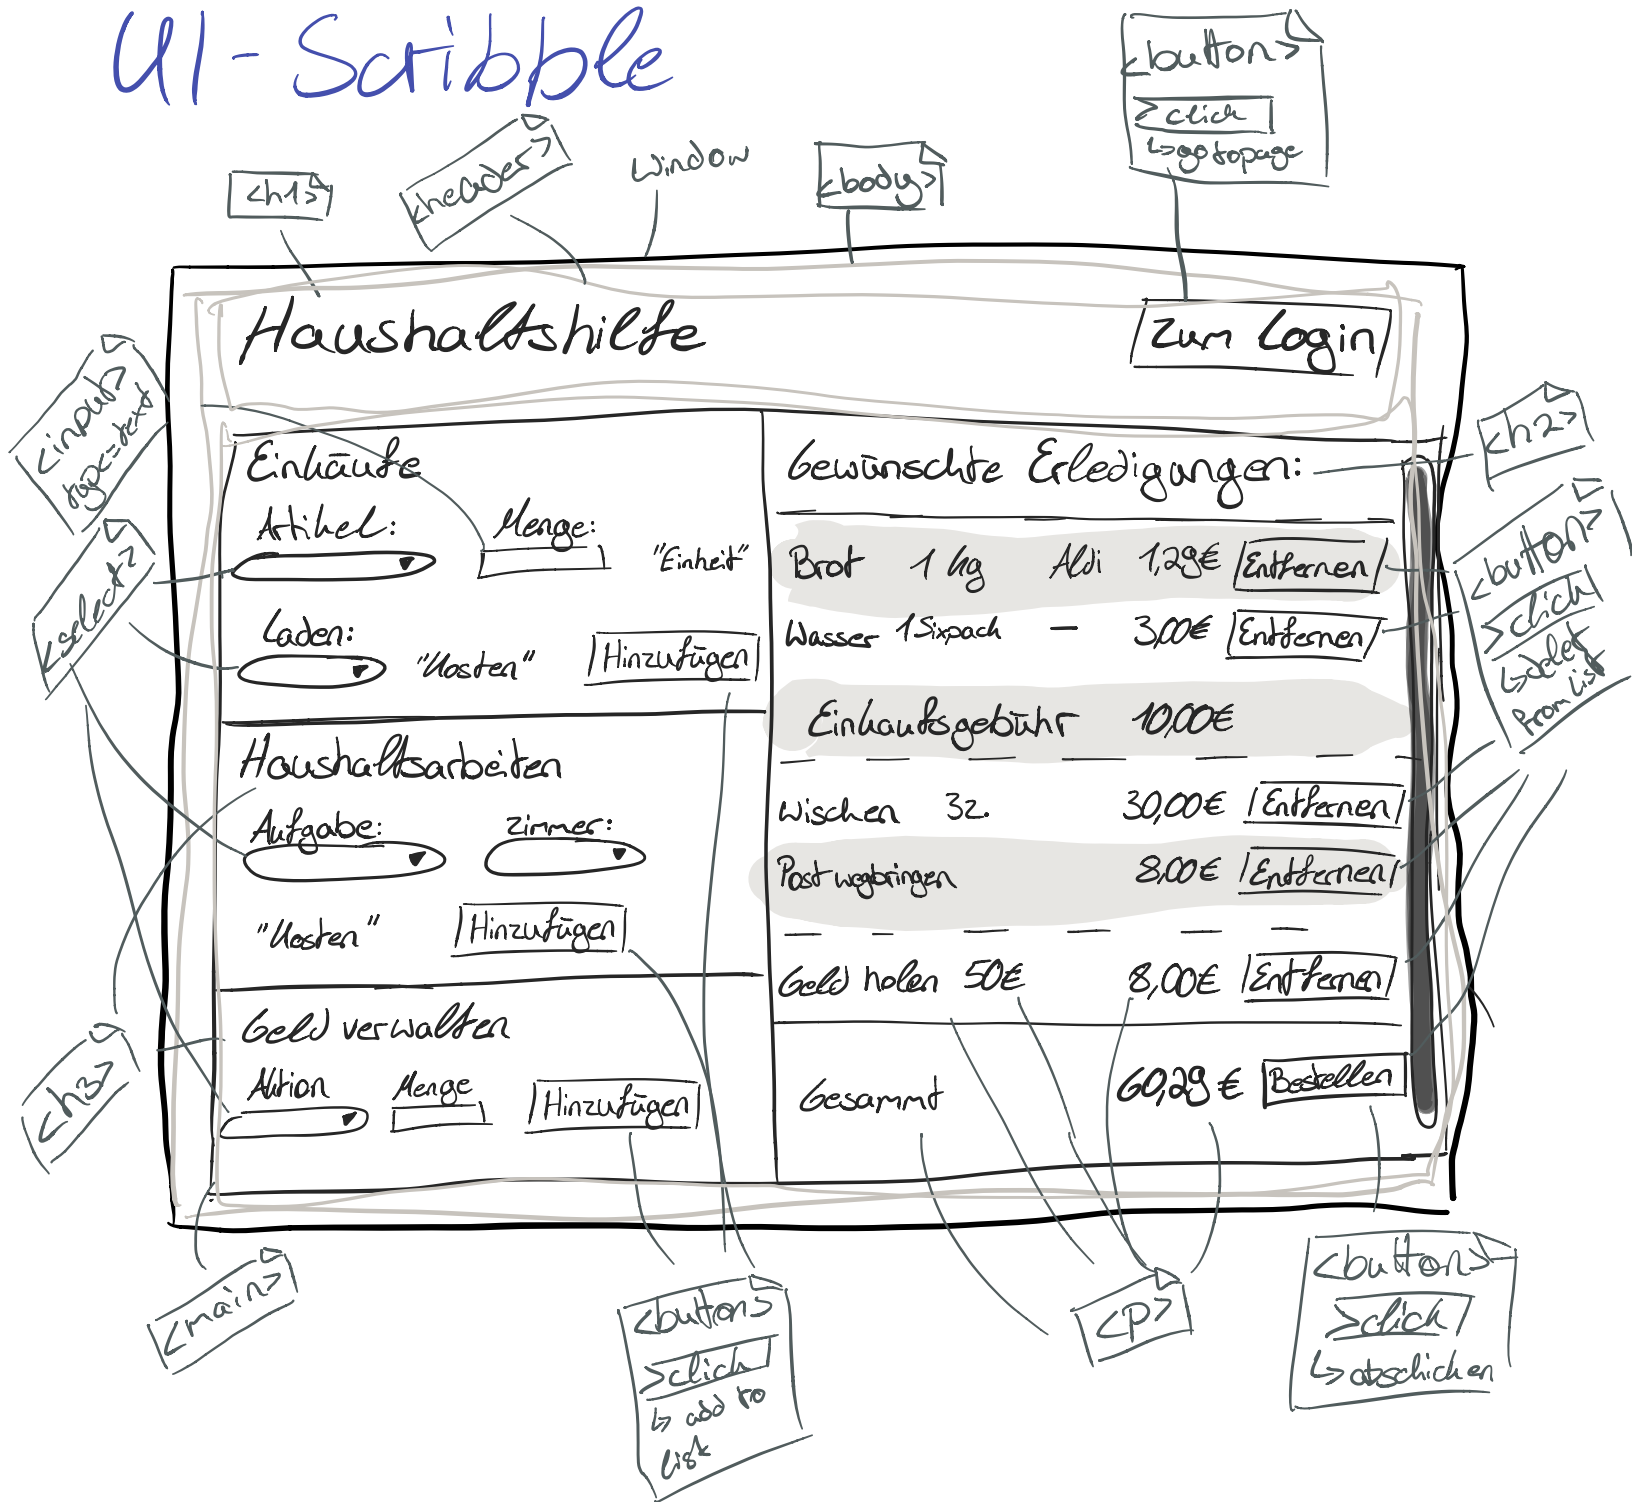 UI-Scribble
<button>
>click
↳go to page
<h1>
<header>
window
<body>
Haushaltshilfe
Zum Login
<input>
type=text
<select>
<h2>
<button>
>click
↳delet
from list
Einkäufe
Artikel:
Menge:
"Einheit"
Laden:
"Kosten"
Hinzufügen
Haushaltsarbeiten
Aufgabe:
Zimmer:
"Kosten"
Hinzufügen
Geld verwalten
Aktion
Menge
Hinzufügen
Gewünschte Erledigungen:
Brot 1 kg Aldi 1,29€ Entfernen
Wasser 1 Sixpack — 3,00€ Entfernen
Einkaufsgebühr 10,00€
Wischen 3z. 30,00€ Entfernen
Post wegbringen 8,00€ Entfernen
Geld holen 50€ 8,00€ Entfernen
Gesammt 60,29€ Bestellen
<h3>
<main>
<button>
>click
↳ add to
list
<p>
<button>
>click
↳ abschicken